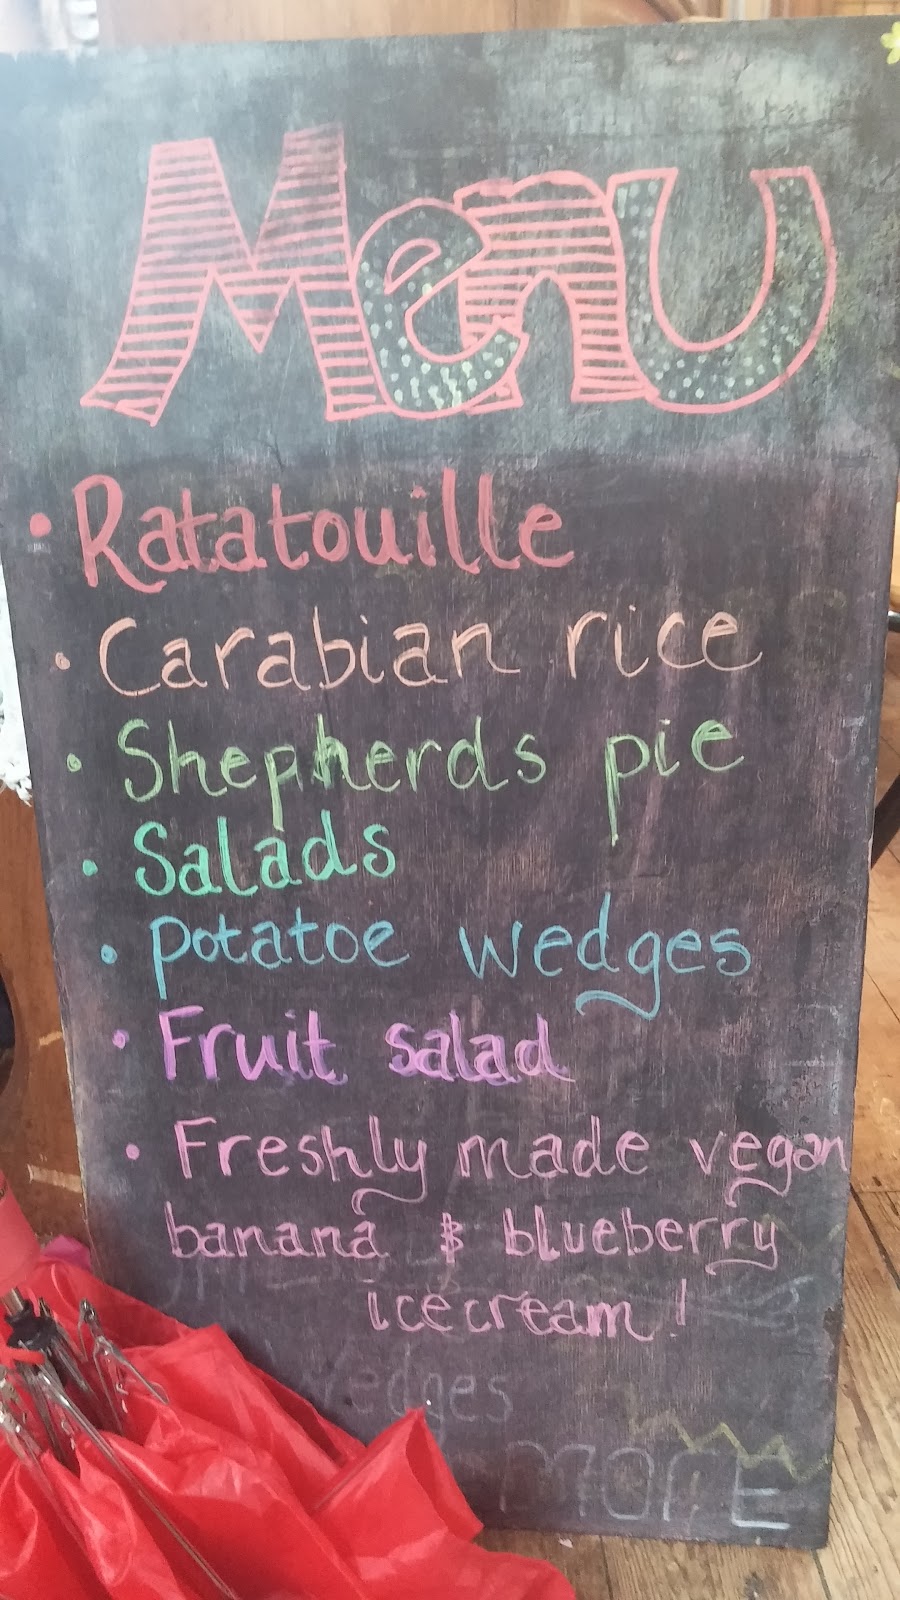 Menu
• Ratatouille
• Carabian rice
• Shepherds pie
• Salads
• Potatoe wedges
• Fruit salad
• Freshly made vegan
banana & blueberry
icecream!
edges
MORE